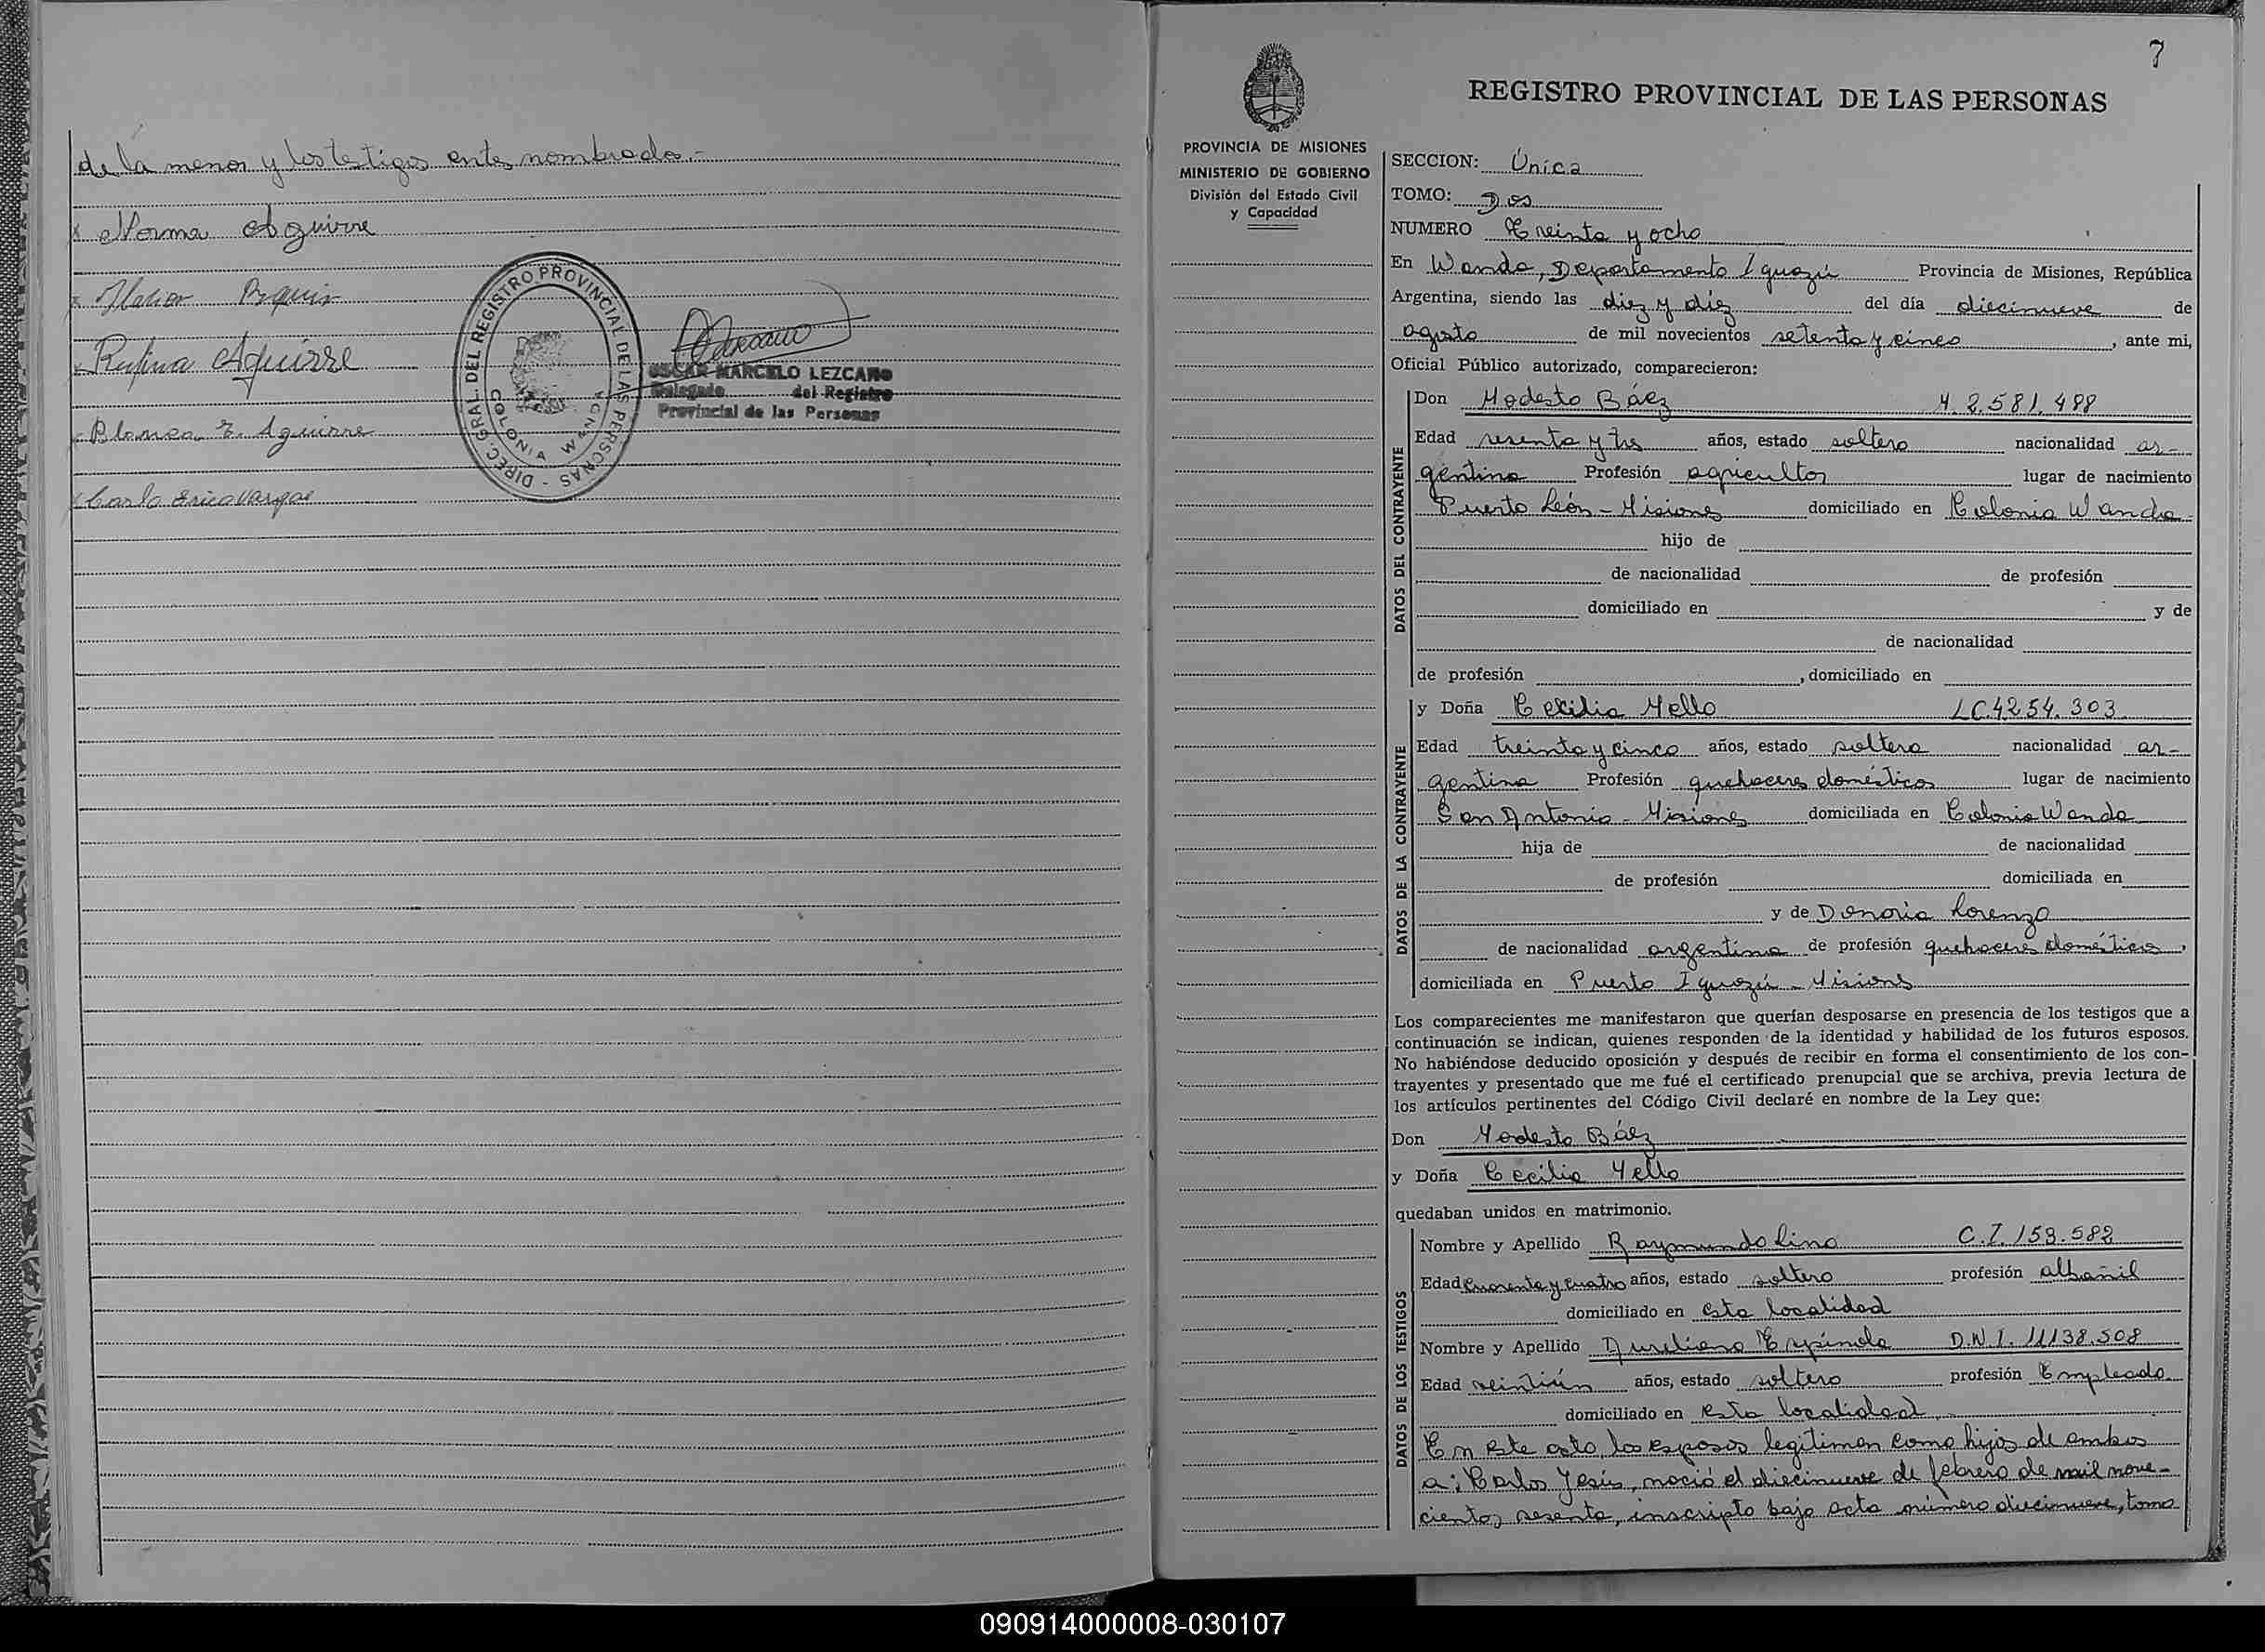 de la menor y los testigos antes nombrados.-
x Norma Aguirre
x
x Rufina Aguirre
x Blanca E. Aguirre
x
DIREC. GRAL. DEL REGISTRO PROVINCIAL DE LAS PERSONAS -
COLONIA WANDA
OSCAR MARCELO LEZCANO
Delegado del Registro
Provincial de las Personas
7
REGISTRO PROVINCIAL DE LAS PERSONAS
PROVINCIA DE MISIONES
MINISTERIO DE GOBIERNO
División del Estado Civil
y Capacidad
SECCION: Única
TOMO: Dos
NUMERO Treinta y ocho
En Wanda, Departamento Iguazú Provincia de Misiones, República
Argentina, siendo las diez y diez del día diecinueve de
agosto de mil novecientos setenta y cinco, ante mi,
Oficial Público autorizado, comparecieron:
DATOS DEL CONTRAYENTE
Don Modesto Báez M. 2.581.488
Edad sesenta y tres años, estado soltero nacionalidad ar-
gentina Profesión agricultor lugar de nacimiento
Puerto León - Misiones domiciliado en Colonia Wanda-
hijo de
de nacionalidad de profesión
domiciliado en y de
de nacionalidad
de profesión , domiciliado en
DATOS DE LA CONTRAYENTE
y Doña Cecilia Mello LC.4254.303
Edad treinta y cinco años, estado soltera nacionalidad ar-
gentina Profesión quehaceres domésticos lugar de nacimiento
San Antonio - Misiones domiciliada en Colonia Wanda
hija de de nacionalidad
de profesión domiciliada en
y de Lorenzo
de nacionalidad argentina de profesión quehaceres domésticos,
domiciliada en Puerto Iguazú - Misiones
Los comparecientes me manifestaron que querían desposarse en presencia de los testigos que a
continuación se indican, quienes responden de la identidad y habilidad de los futuros esposos.
No habiéndose deducido oposición y después de recibir en forma el consentimiento de los con-
trayentes y presentado que me fué el certificado prenupcial que se archiva, previa lectura de
los artículos pertinentes del Código Civil declaré en nombre de la Ley que:
Don Modesto Báez
y Doña Cecilia Mello
quedaban unidos en matrimonio.
DATOS DE LOS TESTIGOS
Nombre y Apellido Raymundo Lino C.I. 153.582
Edad cuarenta y cuatro años, estado soltero profesión albañil
domiciliado en esta localidad
Nombre y Apellido Aureliano Espíndola D.N.I. 11138.508
Edad veintiún años, estado soltero profesión Empleado
domiciliado en esta localidad.
En este acto, los esposos legitiman como hijos de ambos
a: Carlos Jesús, nació el diecinueve de febrero de mil nove-
cientos sesenta, inscripto bajo acta número diecinueve, tomo
090914000008-030107